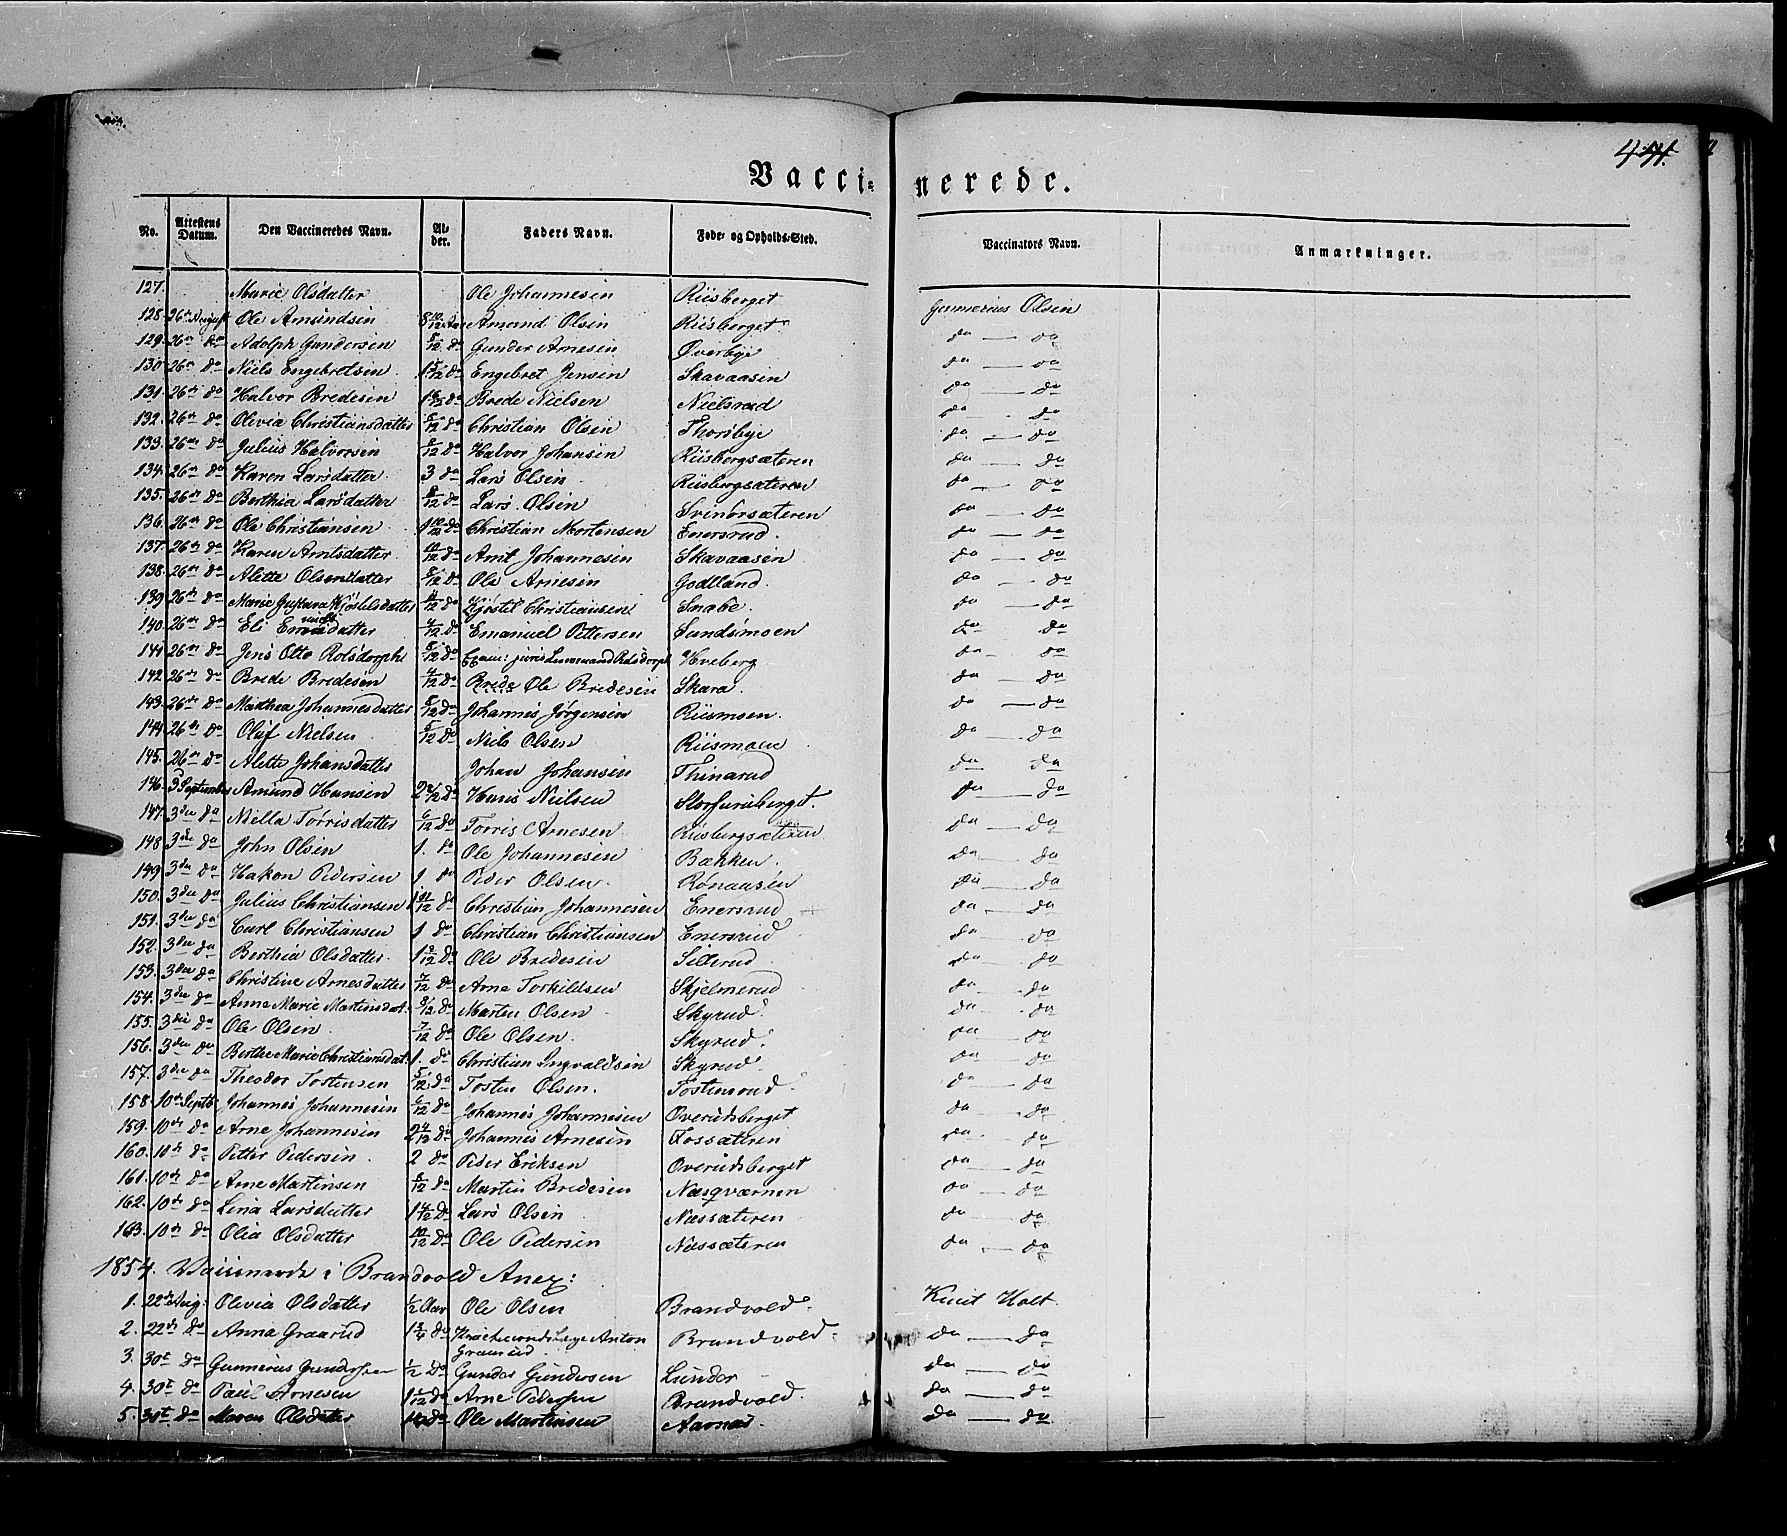 Vaccinerede.
No. Attestens Datum. Den Vaccineredes Navn. Alder. Faders Navn. Føde- og Opholds-Sted. Vaccinators Navn. Anmærkninger.
127. Marie Olsdatter Ole Johannesen Riisberget Gunnerius Olsen
128. 26de August Ole Amundsen 8 10/12 Aar Amund Olsen Riisberget do — do
129. 26de do Adolph Gundersen 8/12 do Gunder Arnesen Overbye do — do
130. 26de do Niels Engebretsen 1 5/12 do Engebret Jensen Skavaasen do — do
131. 26de do Halvor Bredesen do Brede Nielsen Nielsrud do — do
132. 26de do Olivia Christiansdatter 8/12 do Christian Olsen Thorsbye do — do
133. 26de do Julius Halvorsen 8/12 do Halvor Johansen Riisbergsæteren do — do
134. 26de do Karen Larsdatter 3 do Lars Olsen Riisbergsæteren do — do
135. 26de do Berthia Larsdatter 8/12 do Lars Olsen Svinorsæteren do — do
136. 26de do Ole Christiansen 1 10/12 do Christian Mortensen Enersrud. do — do
137. 26de do Karen Arntsdatter 10/12 do Arnt Johannesen Skavaasen do — do
138. 26de do Alette Olsensdatter 8/12 do Ole Arnesen Godtland. do — do
139. 26de do Marie Gustava Kjøstelsdatter do Kjøstel Christiansen Snabe. do — do
140. 26de do Eli datter 4/12 do Emanuel Pettersen Sundsmoen do do
141. 26de do Jens Otto Rolsdorph 8/12 do Exam: juris Lensmand Rolsdorph Hveberg do do
142. 26de do Brede Bredesen 4/12 do Brede Ole Bredesen Skara. do — do
143. 26de do Mathea Johannesdatter 8/12 do Johannes Jørgensen Riismoen. do — do
144. 26de do Oluf Nielsen 5/12 do Niels Olsen Riismoen do — do
145. 26de do Alette Johansdatter Johan Johansen Thinarud do do
146. 3 September Amund Hansen do Hans Nielsen Storfuruberget. do — do
147. 3die do Niella Torrisdatter 6/12 do Torris Arnesen Riisbergsæteren do — do
148. 3die do John Olsen 1. do Ole Johannesen Bækken. do — do
149. 3die do Hakon Pedersen 1 do Peder Olsen. Rønaasen do — do
150. 3die do Julius Christiansen do Christian Johannesen Enersrud do — do
151. 3die do Carl Christiansen 1 do Christian Christiansen Enersrud do — do
152. 3die do Berthia Olsdatter. do Ole Bredesen Sillerud do — do
153. 3die do Christine Arnesdatter 7/12 do Arne Torkildsen Skjelmerud do — do
154. 3die do Anne Marie Martinsdat. 8/12 do Marten Olsen Skyrud. do — do
155. 3die do Ole Olsen. 7/12 do Ole Olsen. Skyrud. do — do
156. 3die do Berthe Marie Christiansdat. 1. do Christian Ingvaldsen Skyrud. do — do
157. 3die do Theodor Tostensen 5/12 do Tosten Olsen. Tostensrud. do — do
158. 10de Septb Johannes Johannesen 6/12 do Johannes Johannesen Overudsberget do — do
159. 10de do Arne Johannesen 2 4/12 do Johannes Arnesen Fossæteren do — do
160. 10de do Petter Pedersen. 2 do Peder Eriksen Overudsberget do — do
161. 10de do Arne Martinsen 8/12 do Martin Bredesen Næsqværnen do — do
162. 10de do Lina Larsdatter 1 4/12 do Lars Olsen Næssæteren do — do
163. 10de do Olia Olsdatter 10/12 do Ole Pedersen Næssæteren do — do
1854. Vaccinerede i Brandvold Anex:
1. 22de Aug: Olivia Olsdatter 1/2 Aar Ole Olsen Brandvold. Knut Holt.
2. 22de do Anna Graarud do Anton Brandvold. do — do
Graarud.
3. 30te do Gunnerius Gundersen 1/2 do Gunder Gundersen Lunder do — do
4. 30te do Paul Arnesen do Arne Pedersen Brandvold. do — do
5. 30te do Maren Olsdatter do Ole Martinsen Aarnæs. do — do